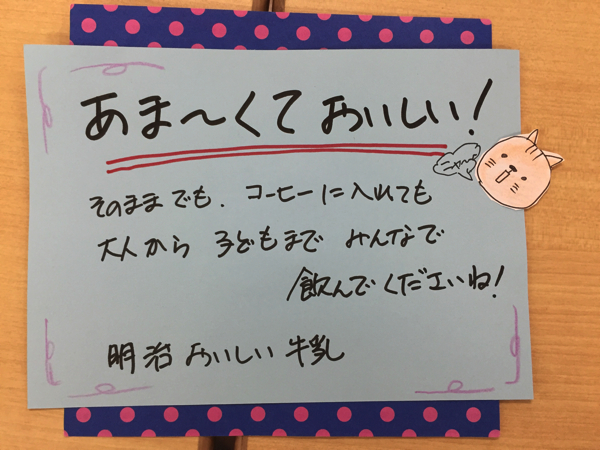 あま〜くて おいしい!
ニャ〜
そのままでも、コーヒーに入れても
大人から 子どもまで みんなで
飲んでくださいね!
明治 おいしい 牛乳